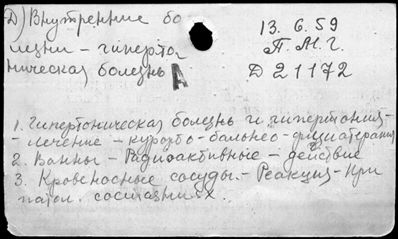 Д) Внутренние бо
лезни – гиперто
ническая болезнь А
13. 6. 59
П. М. Г.
Д 21172
1. Гипертоническая болезнь и гипертония –
– лечение – курорто – бальнео – физиотерапия
2. Ванны – Радиоактивные – действие
3. Кровеносные сосуды. – Реакция – При
патол. состояниях.